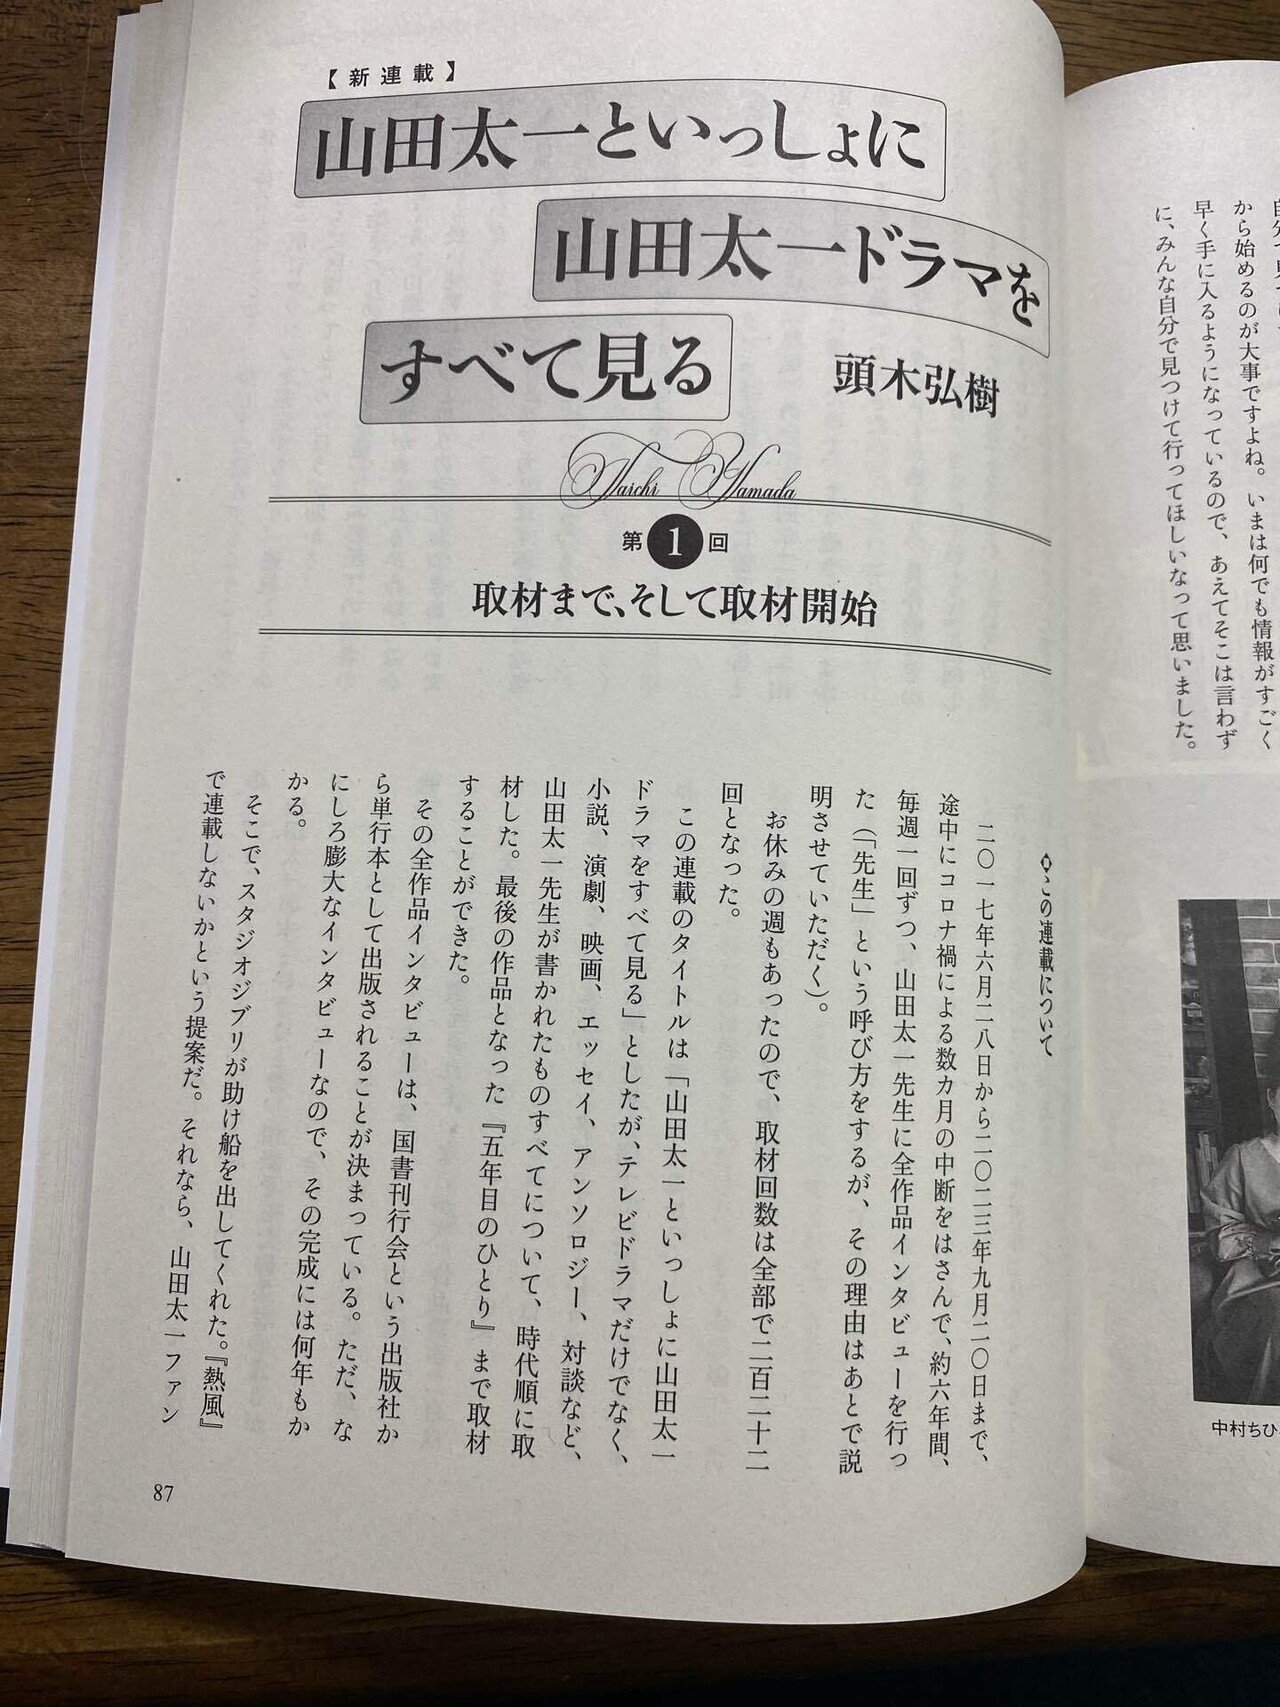 から始めるのが大事ですよね。いまは何でも情報がすごく
早く手に入るようになっているので、あえてそこは言わず
に、みんな自分で見つけて行ってほしいなって思いました。
中村ちひ
【新連載】
山田太一といっしょに
山田太一ドラマを
すべて見る
頭木弘樹
Taichi Yamada
第1回
取材まで、そして取材開始
この連載について
二〇一七年六月二八日から二〇二三年九月二〇日まで、
途中にコロナ禍による数カ月の中断をはさんで、約六年間、
毎週一回ずつ、山田太一先生に全作品インタビューを行っ
た（「先生」という呼び方をするが、その理由はあとで説
明させていただく）。
お休みの週もあったので、取材回数は全部で二百二十二
回となった。
この連載のタイトルは「山田太一といっしょに山田太一
ドラマをすべて見る」としたが、テレビドラマだけでなく、
小説、演劇、映画、エッセイ、アンソロジー、対談など、
山田太一先生が書かれたものすべてについて、時代順に取
材した。最後の作品となった『五年目のひとり』まで取材
することができた。
その全作品インタビューは、国書刊行会という出版社か
ら単行本として出版されることが決まっている。ただ、な
にしろ膨大なインタビューなので、その完成には何年もか
かる。
そこで、スタジオジブリが助け船を出してくれた。『熱風』
で連載しないかという提案だ。それなら、山田太一ファン
87